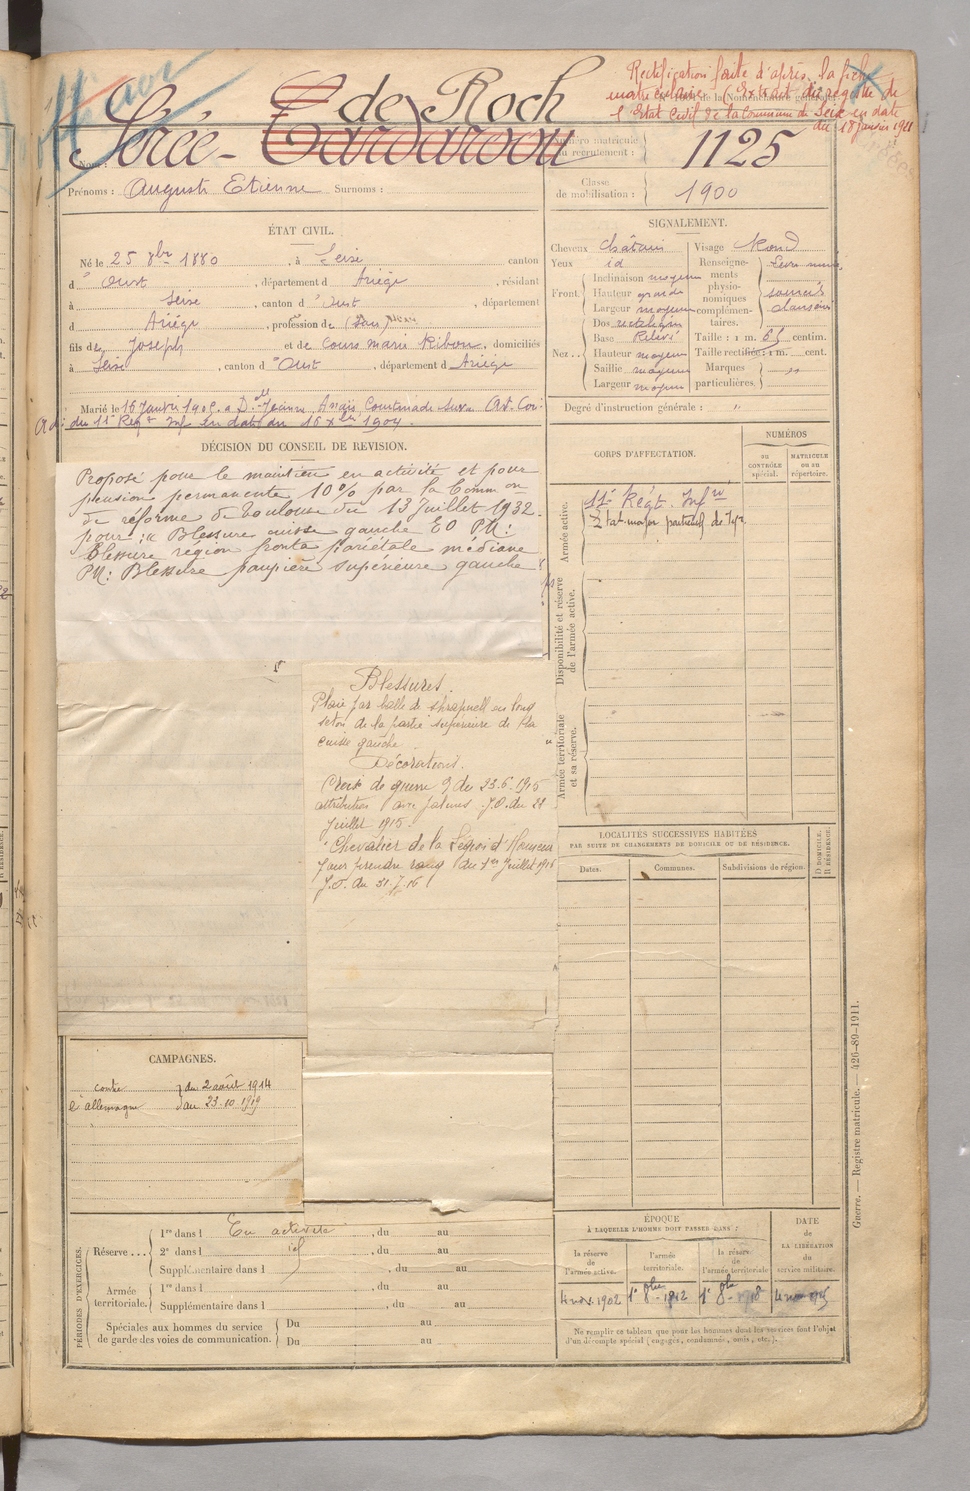 Officier
Rectification faite d'après la fiche
matriculaire (Extrait du registre de
l'Etat civil de la Commune de Seix en date
du 18 janvier 1921
de Roch
Nom : Sérée-
Numéro matricule
du recrutement : 1125
Prénoms : Auguste Etienne Surnoms :
Classe
de mobilisation : 1900
ÉTAT CIVIL.
Né le 25 8bre 1880, à Seix canton
d'Oust, département d Ariège, résidant
à Seix, canton d'Oust, département
d Ariège, profession de
fils de Joseph et de Cours marie Ribou, domiciliés
à Seix, canton d'Oust, département d Ariège
Marié le 16 Janvier 1905 à Dlle Jeanne Anaïs Courtinade
du 11e Regt Inf en date du 16 Xbre 1904.
SIGNALEMENT.
Cheveux châtain
Yeux id
Front : Inclinaison moyenne
Hauteur grande
Largeur moyenne
Nez : Dos rectiligne
Base Relevé
Hauteur moyenne
Saillie moyenne
Largeur moyenne
Visage Rond
Renseignements physionomiques complémentaires.
sourcils
Taille : 1 m. 65 centim.
Taille rectifiée : 1 m. cent.
Marques
particulières.
Degré d'instruction générale : "
DÉCISION DU CONSEIL DE REVISION.
Proposé pour le maintien en activité et pour
pension permanente 10% par la Comm on
de réforme de Toulouse du 13 Juillet 1932.
pour : " Blessure cuisse gauche EO PM:
blessure région fronto pariétale médiane
PM: Blessure paupière supérieure gauche
Blessures.
Plaie par balle de shrapnell en long
séton de la partie supérieure de la
cuisse gauche.
Décorations.
Croix de guerre D du 23.6.1915
attribution avec palmes J.O. du 21
Juillet 1915.
Chevalier de la Légion d'Honneur
pour prendre rang du 1er Juillet 1916
J.O. du 31.7.16
CORPS D'AFFECTATION.
NUMÉROS
AU CONTRÔLE spécial.
MATRICULE OU AU répertoire.
Armée active.
11e Régt. Infrie
Etat-major particulier de
Disponibilité et réserve
de l'armée active.
Armée territoriale
et sa réserve.
LOCALITÉS SUCCESSIVES HABITÉES
PAR SUITE DE CHANGEMENTS DE DOMICILE OU DE RÉSIDENCE.
Dates.
Communes.
Subdivisions de région.
D DOMICILE.
R RÉSIDENCE.
CAMPAGNES.
contre du 2 août 1914
l'allemagne au 23.10.1919
PÉRIODES D'EXERCICES.
Réserve...
1re dans l En activité, du au
2e dans l id, du au
Supplémentaire dans l, du au
Armée
territoriale.
1re dans l, du au
Supplémentaire dans l, du au
Spéciales aux hommes du service
de garde des voies de communication.
Du au
Du au
ÉPOQUE
À LAQUELLE L'HOMME DOIT PASSER DANS :
la réserve
de
l'armée active.
l'armée
territoriale.
la réserve
de
l'armée territoriale
DATE
de
LA LIBÉRATION
du
service militaire.
1er nov. 1902
1er 8bre 1912
1er 8bre 1918
Ne remplir ce tableau que pour les hommes dont les services font l'objet
d'un décompte spécial (engagés, condamnés, omis, etc.).
Guerre. — Registre matricule. — 426-89-1911.